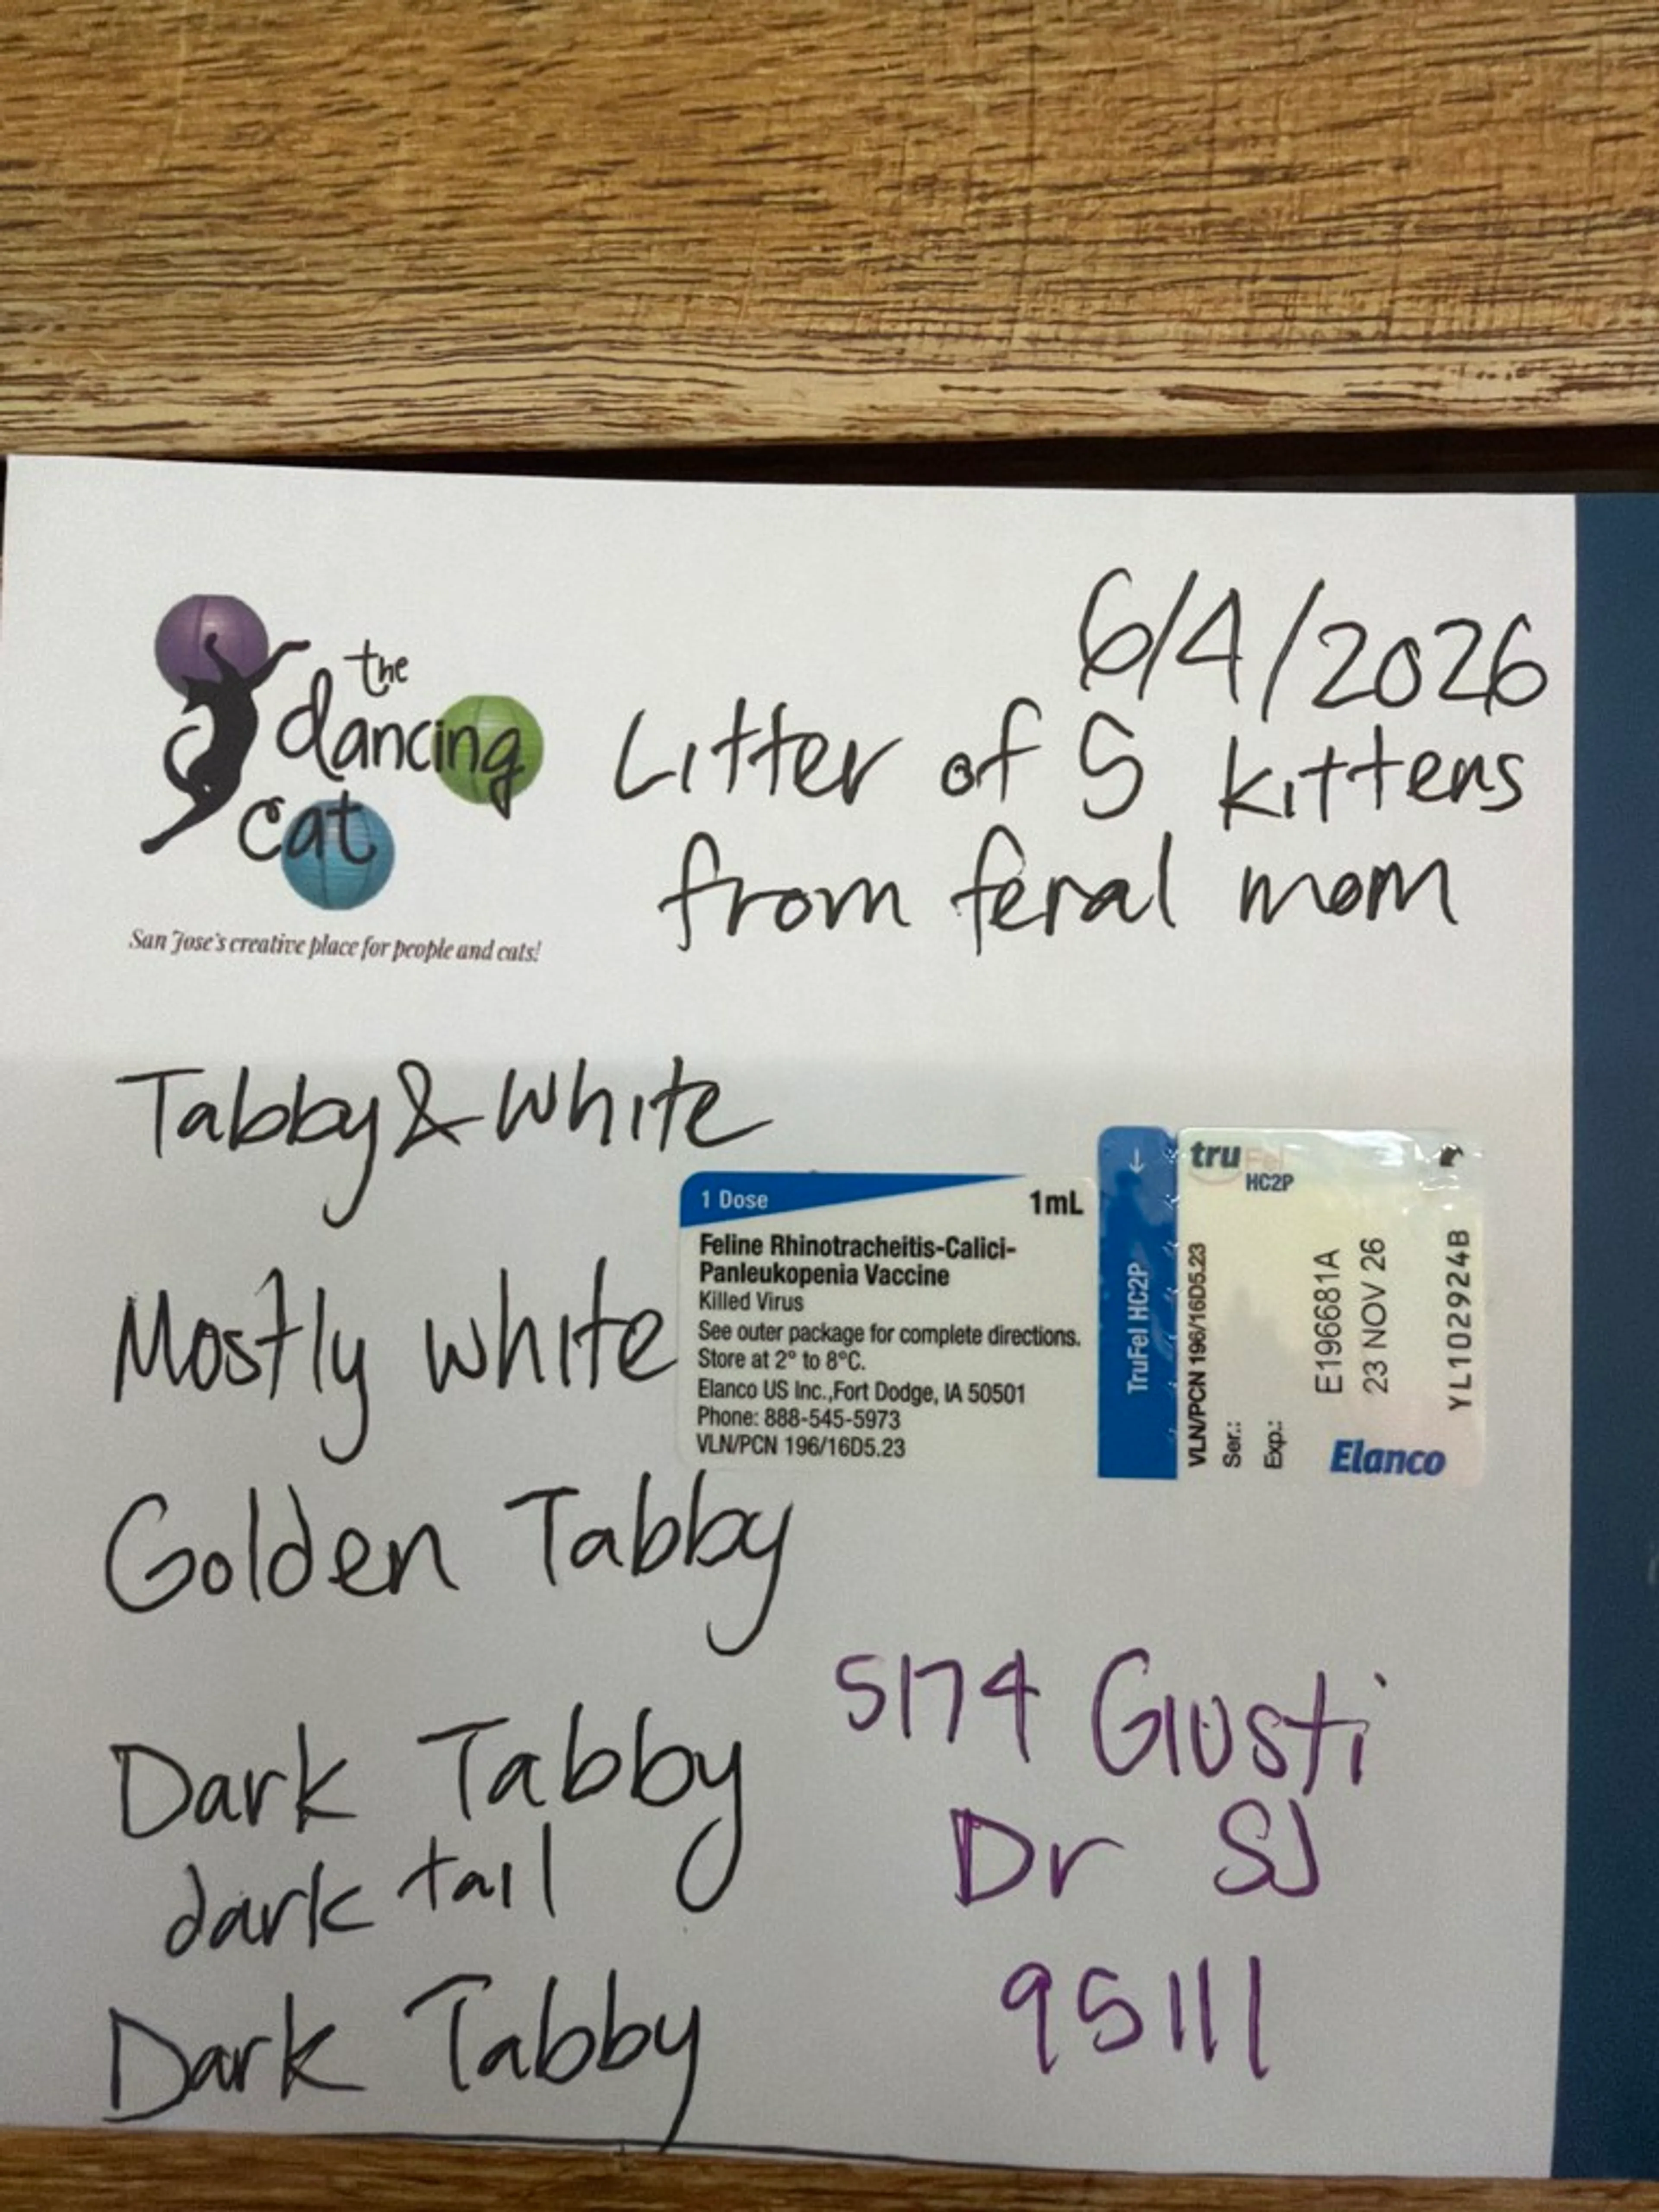 the
dancing
cat
San Jose's creative place for people and cats!
6/4/2026
Litter of 5 kittens
from feral mom
Tabby & White
Mostly white
1 Dose
1mL
Feline Rhinotracheitis-Calici-
Panleukopenia Vaccine
Killed Virus
See outer package for complete directions.
Store at 2° to 8°C.
Elanco US Inc.,Fort Dodge, IA 50501
Phone: 888-545-5973
VLN/PCN 196/16D5.23
TruFel HC2P
truFel
HC2P
VLN/PCN 196/16D5.23
Ser.: E196681A
Exp.: 23 NOV 26
YL102924B
Elanco
Golden Tabby
Dark Tabby
dark tail
Dark Tabby
5174 Giusti
Dr SJ
95111